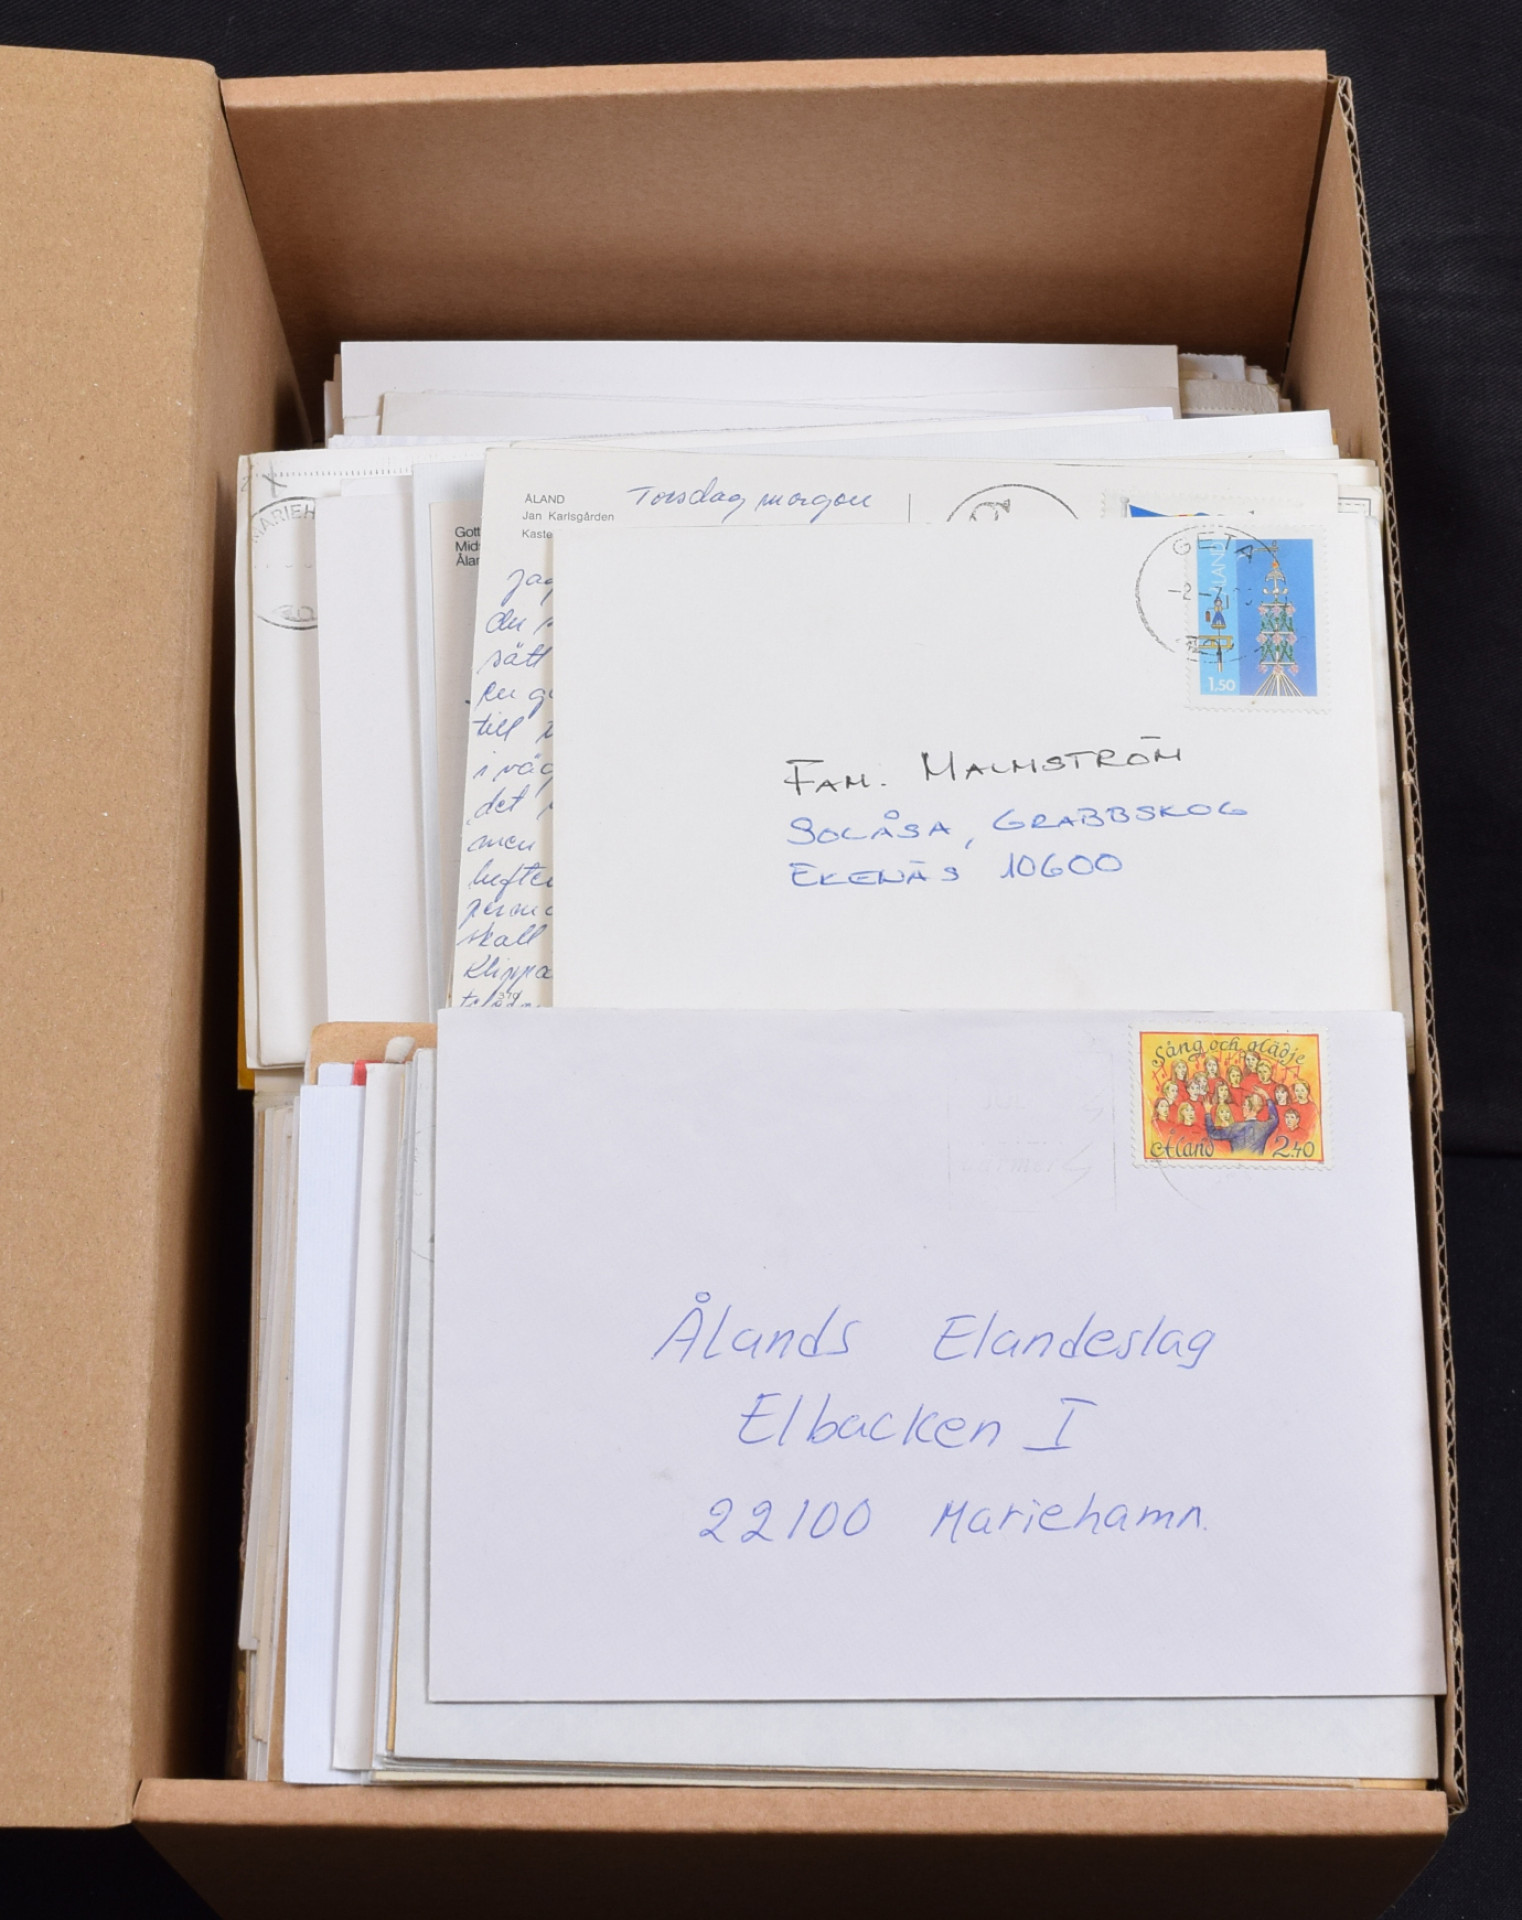 MARIEH
Gott
Mids
Ålan
ÅLAND
Jan Karlsgården
Kaste
Torsdag morgon
jag
du
sätt
en
till
i väg
det
men
skall
klippa
GETA
-2-7
ÅLAND
1,50
FAM. MALMSTRÖM
SOLÅSA, GRABBSKOG
EKENÄS 10600
JUL
Sång och glädje
Åland 2.40
Ålands Elandeslag
Elbacken I
22100 Mariehamn.